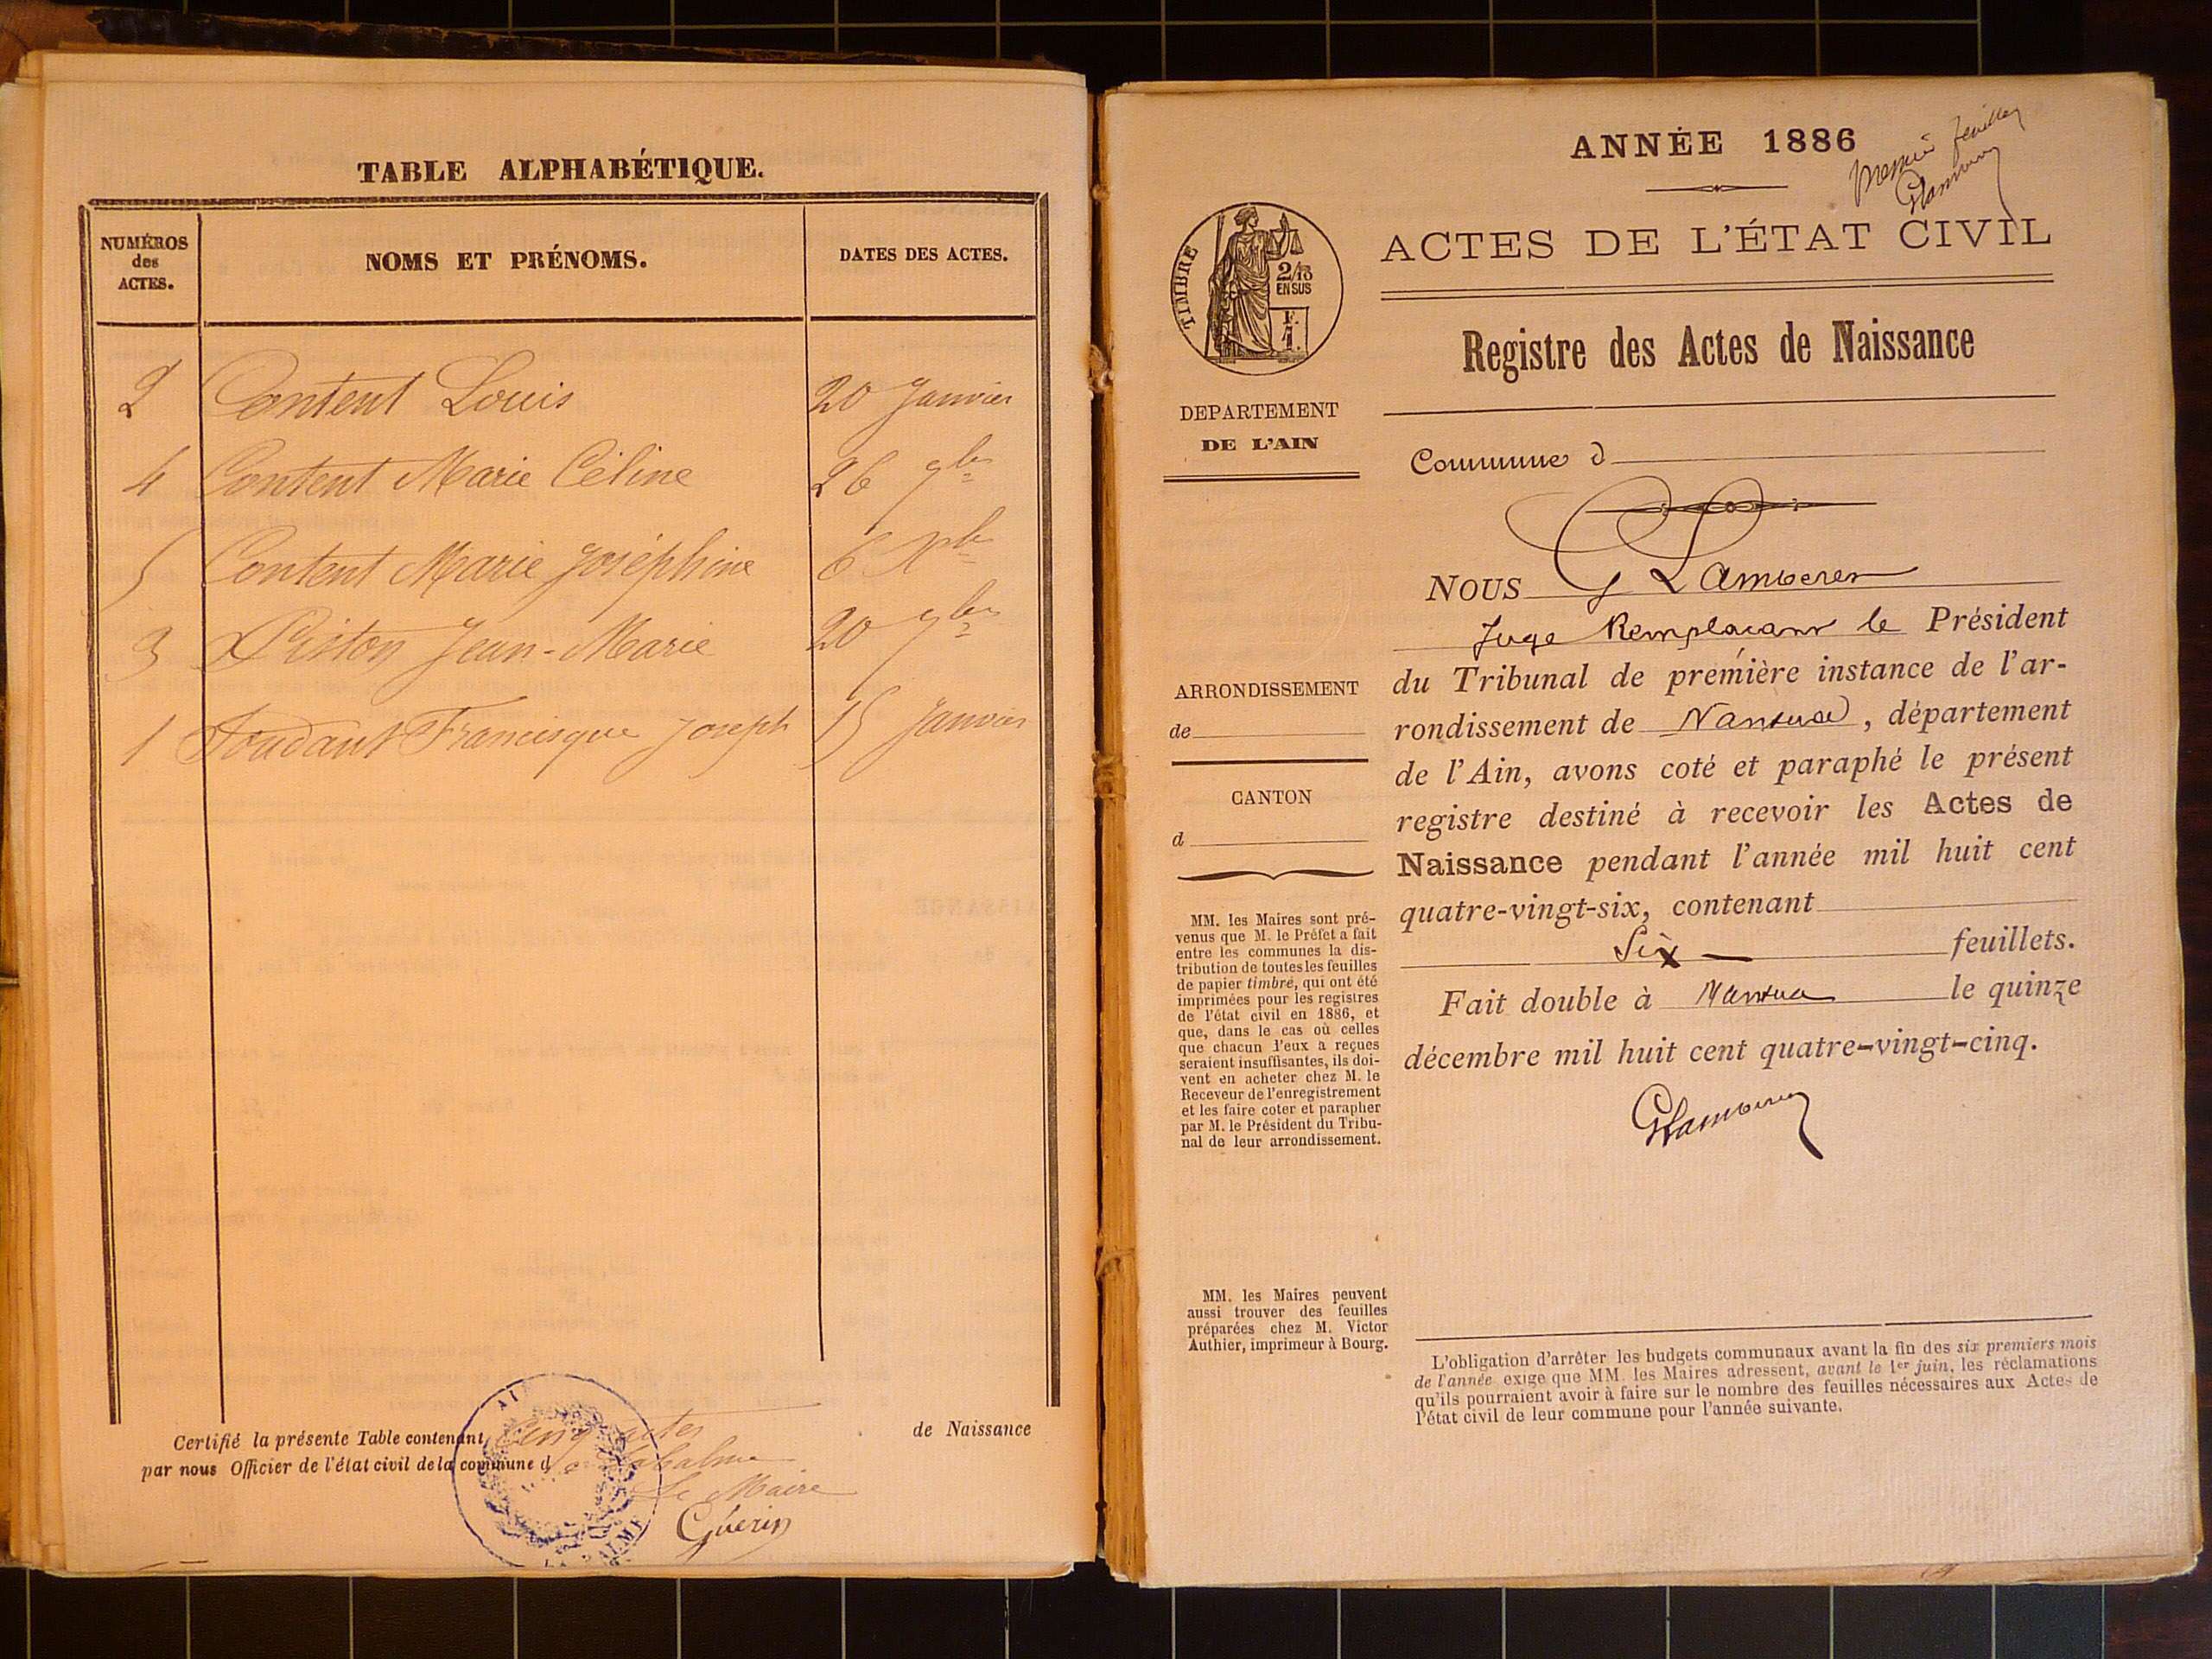 TABLE ALPHABÉTIQUE.
NUMÉROS
des
ACTES.
NOMS ET PRÉNOMS.
DATES DES ACTES.
2 Content Louis 20 Janvier
4 Content Marie Céline 26 9bre
5 Content Marie Joséphine 6 Xbre
3 Jean-Marie 20 9bre
1 Francisque Joseph 15 Janvier
Certifié la présente Table contenant Cinq actes de Naissance
par nous Officier de l'état civil de la commune de Labalme
Le Maire
Guerin
ANNÉE 1886
feuillet
ACTES DE L'ÉTAT CIVIL
TIMBRE
2/10
EN SUS
Registre des Actes de Naissance
DEPARTEMENT
DE L'AIN
Commune d
NOUS
Juge Remplaçant le Président
du Tribunal de première instance de l'ar-
rondissement de Nantua, département
de l'Ain, avons coté et paraphé le présent
registre destiné à recevoir les Actes de
Naissance pendant l'année mil huit cent
quatre-vingt-six, contenant
Six feuillets.
Fait double à Nantua le quinze
décembre mil huit cent quatre-vingt-cinq.
ARRONDISSEMENT
de
CANTON
d
MM. les Maires sont pré-
venus que M. le Préfet a fait
entre les communes la dis-
tribution de toutes les feuilles
de papier timbré, qui ont été
imprimées pour les registres
de l'état civil en 1886, et
que, dans le cas où celles
que chacun d'eux a reçues
seraient insuffisantes, ils doi-
vent en acheter chez M. le
Receveur de l'enregistrement
et les faire coter et parapher
par M. le Président du Tribu-
nal de leur arrondissement.
MM. les Maires peuvent
aussi trouver des feuilles
préparées chez M. Victor
Authier, imprimeur à Bourg.
L'obligation d'arrêter les budgets communaux avant la fin des six premiers mois
de l'année exige que MM. les Maires adressent, avant le 1er juin, les réclamations
qu'ils pourraient avoir à faire sur le nombre des feuilles nécessaires aux Actes de
l'état civil de leur commune pour l'année suivante.